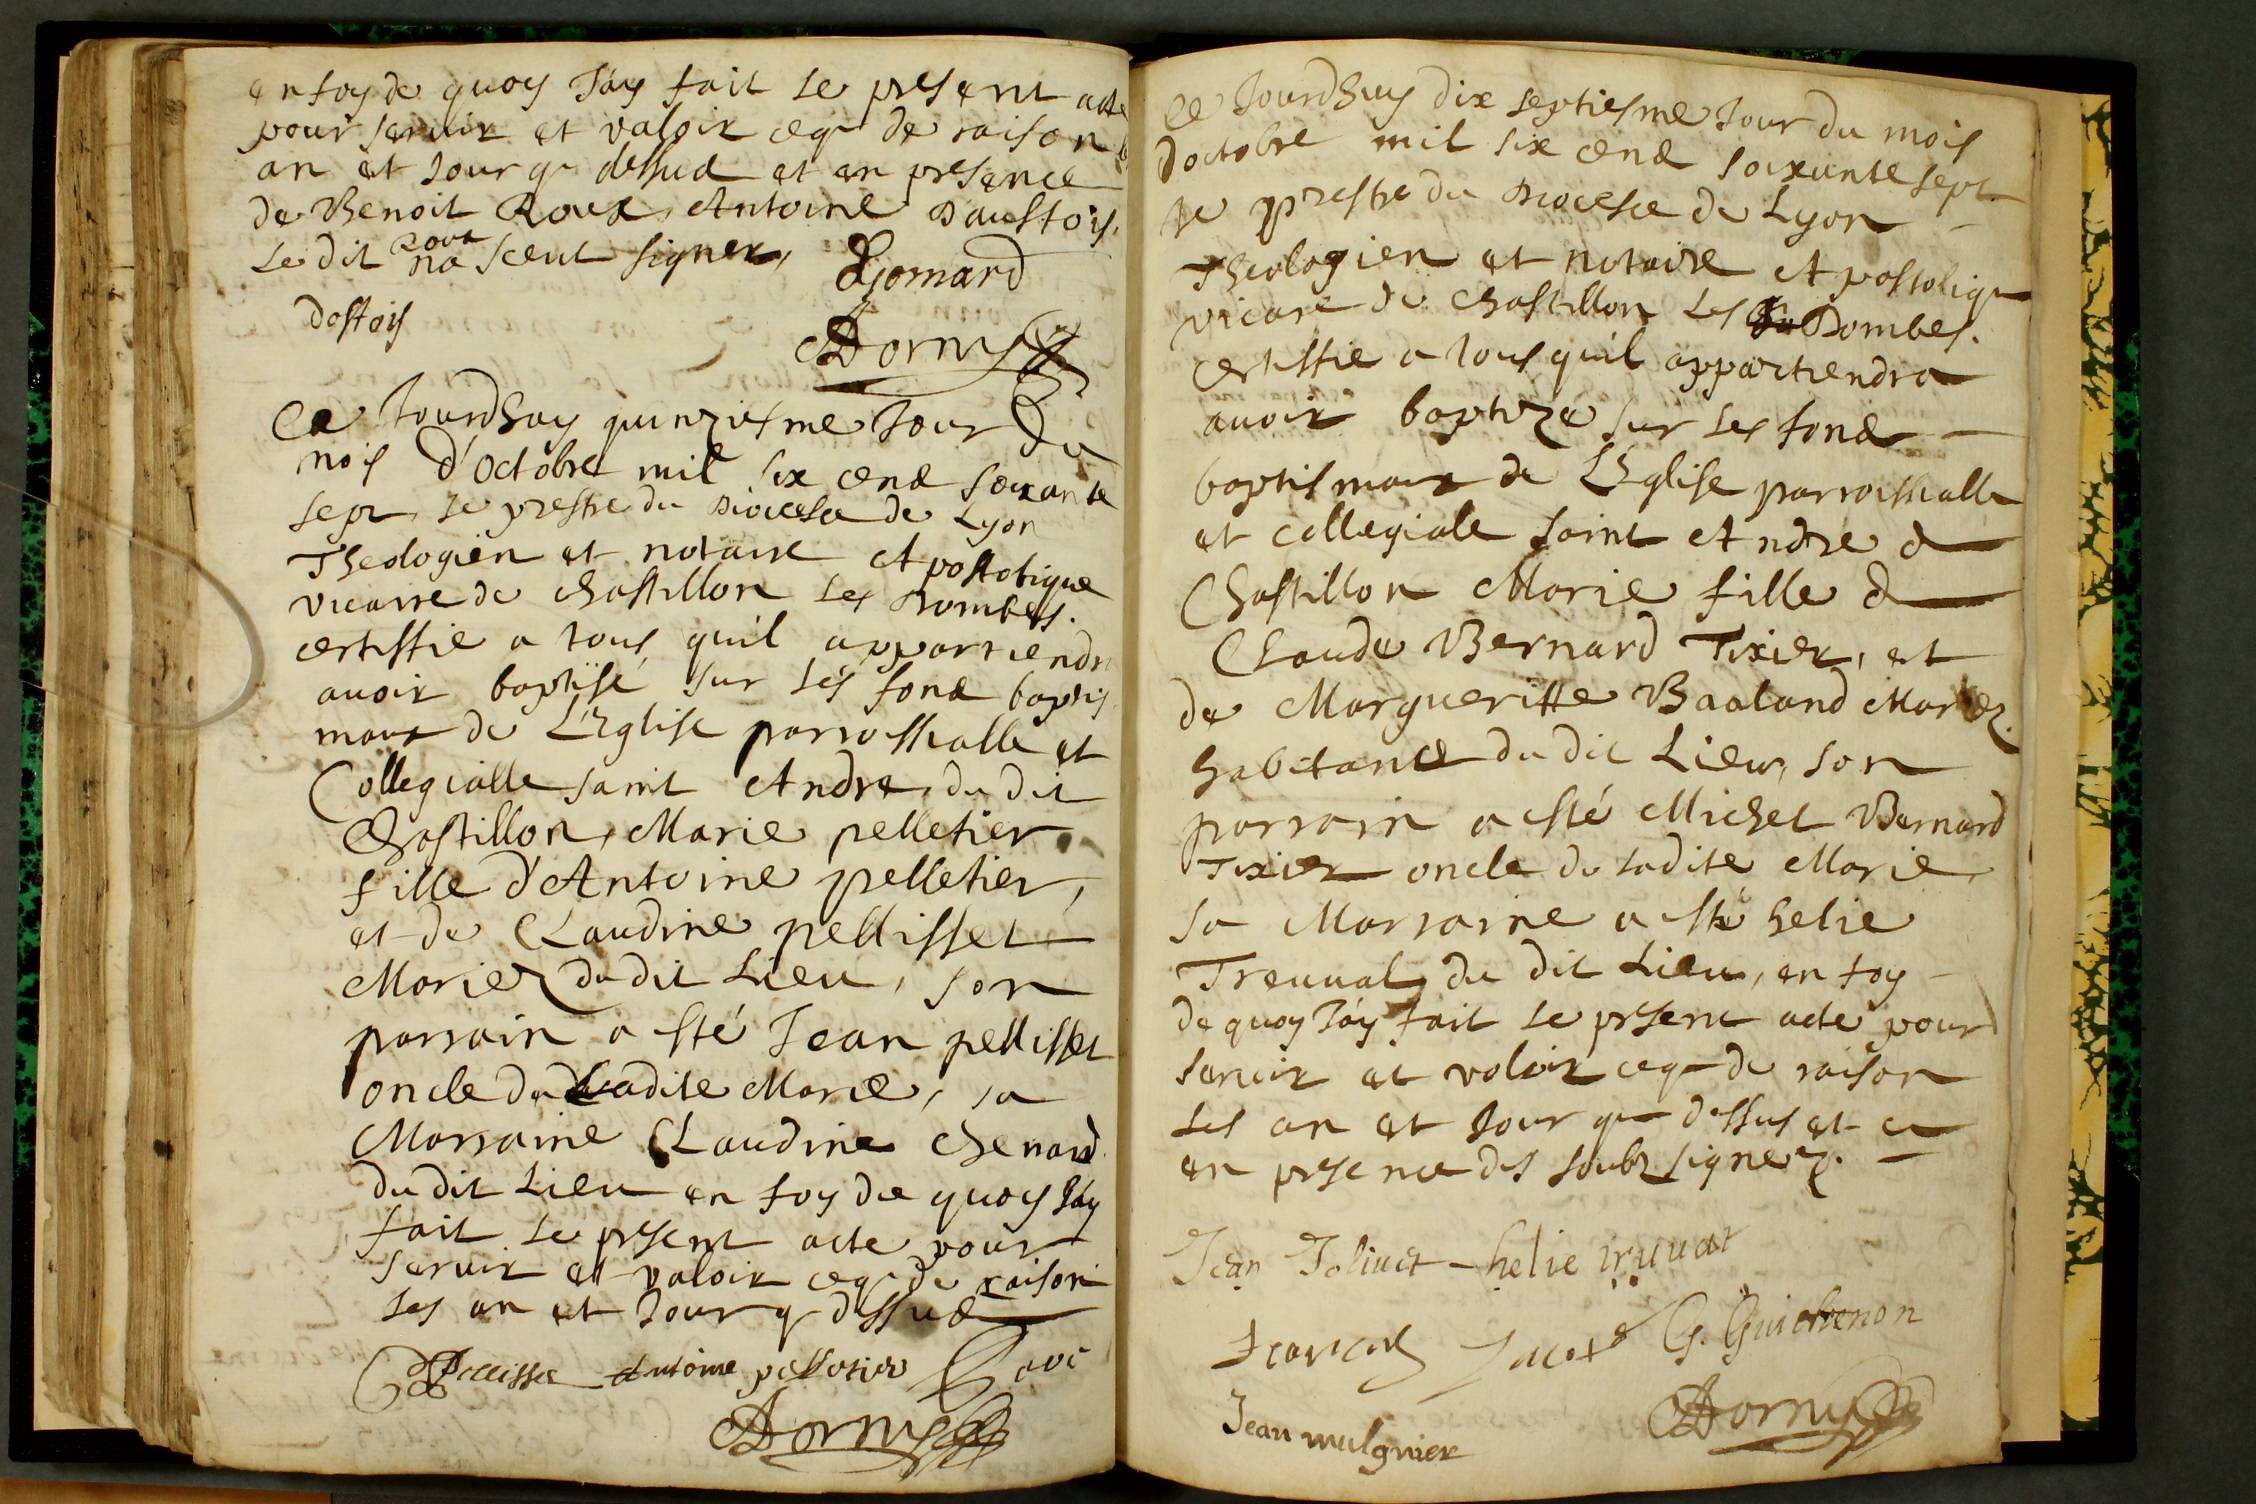 en foy de quoy Jáy fait le present acte
pour seruir et valoir ceq de raison
an et Jour q dessus et en presence
de Benoit Roux, Antoine Daustois.
Le dit Roux na sceut signer,
Gomard
dostois
Dorny
Ce Jourdhuy quinziesme Jour du
mois d'octobre mil six cens soixante
sept, Je prestre du Diocese de Lyon
Theologien et notaire Apostolique
vicaire de Chastillon les Dombes.
certiffie a tous quil appartiendra
auoir baptisé sur les fons baptis
maux de L'Eglise parrochialle et
Collegialle saint Andre du dit
Chastillon, Marie pelletier
fille d'Antoine pelletier,
et de Claudine pellisset
Mariez du dit Lieu, son
parrain a esté Jean pellisset
oncle de Ladite Marie, sa
Marraine Claudine Chenard
du dit Lieu en foy de quoy Jáy
fait le present acte pour
seruir et valoir ceq de raison
les an et Jour q dessus
pellisset Antoine pelletier
Dorny
Ce Jourdhuy dix septiesme Jour du mois
doctobre mil six cens soixante sept
Je prestre du Diocese de Lyon
Theologien et notaire Apostoliq
vicare de Chastillon les Dombes.
certiffie a tous quil appartiendra
auoir baptizé sur les fons
baptismaux de L'Eglise parroissialle
et collegiale saint Andre d
Chastillon Marie fille d
Claude Bernard Tixier, et
de Margueritte Baaland Mariez.
habitants du dit Lieu, son
parrain a esté Michel Bernard
Tixier oncle de ladite Marie,
sa Marraine a esté helie
Treuual du dit Lieu, en foy
de quoy Jáy fait le present acte pour
seruir et valoir ceq de raison
les an et Jour q dessus et e
en presence des soubz signez.
Jean Joliuet helie truuat
francois Jacoxs G. Guichenon
Jean mulgnier
Dorny